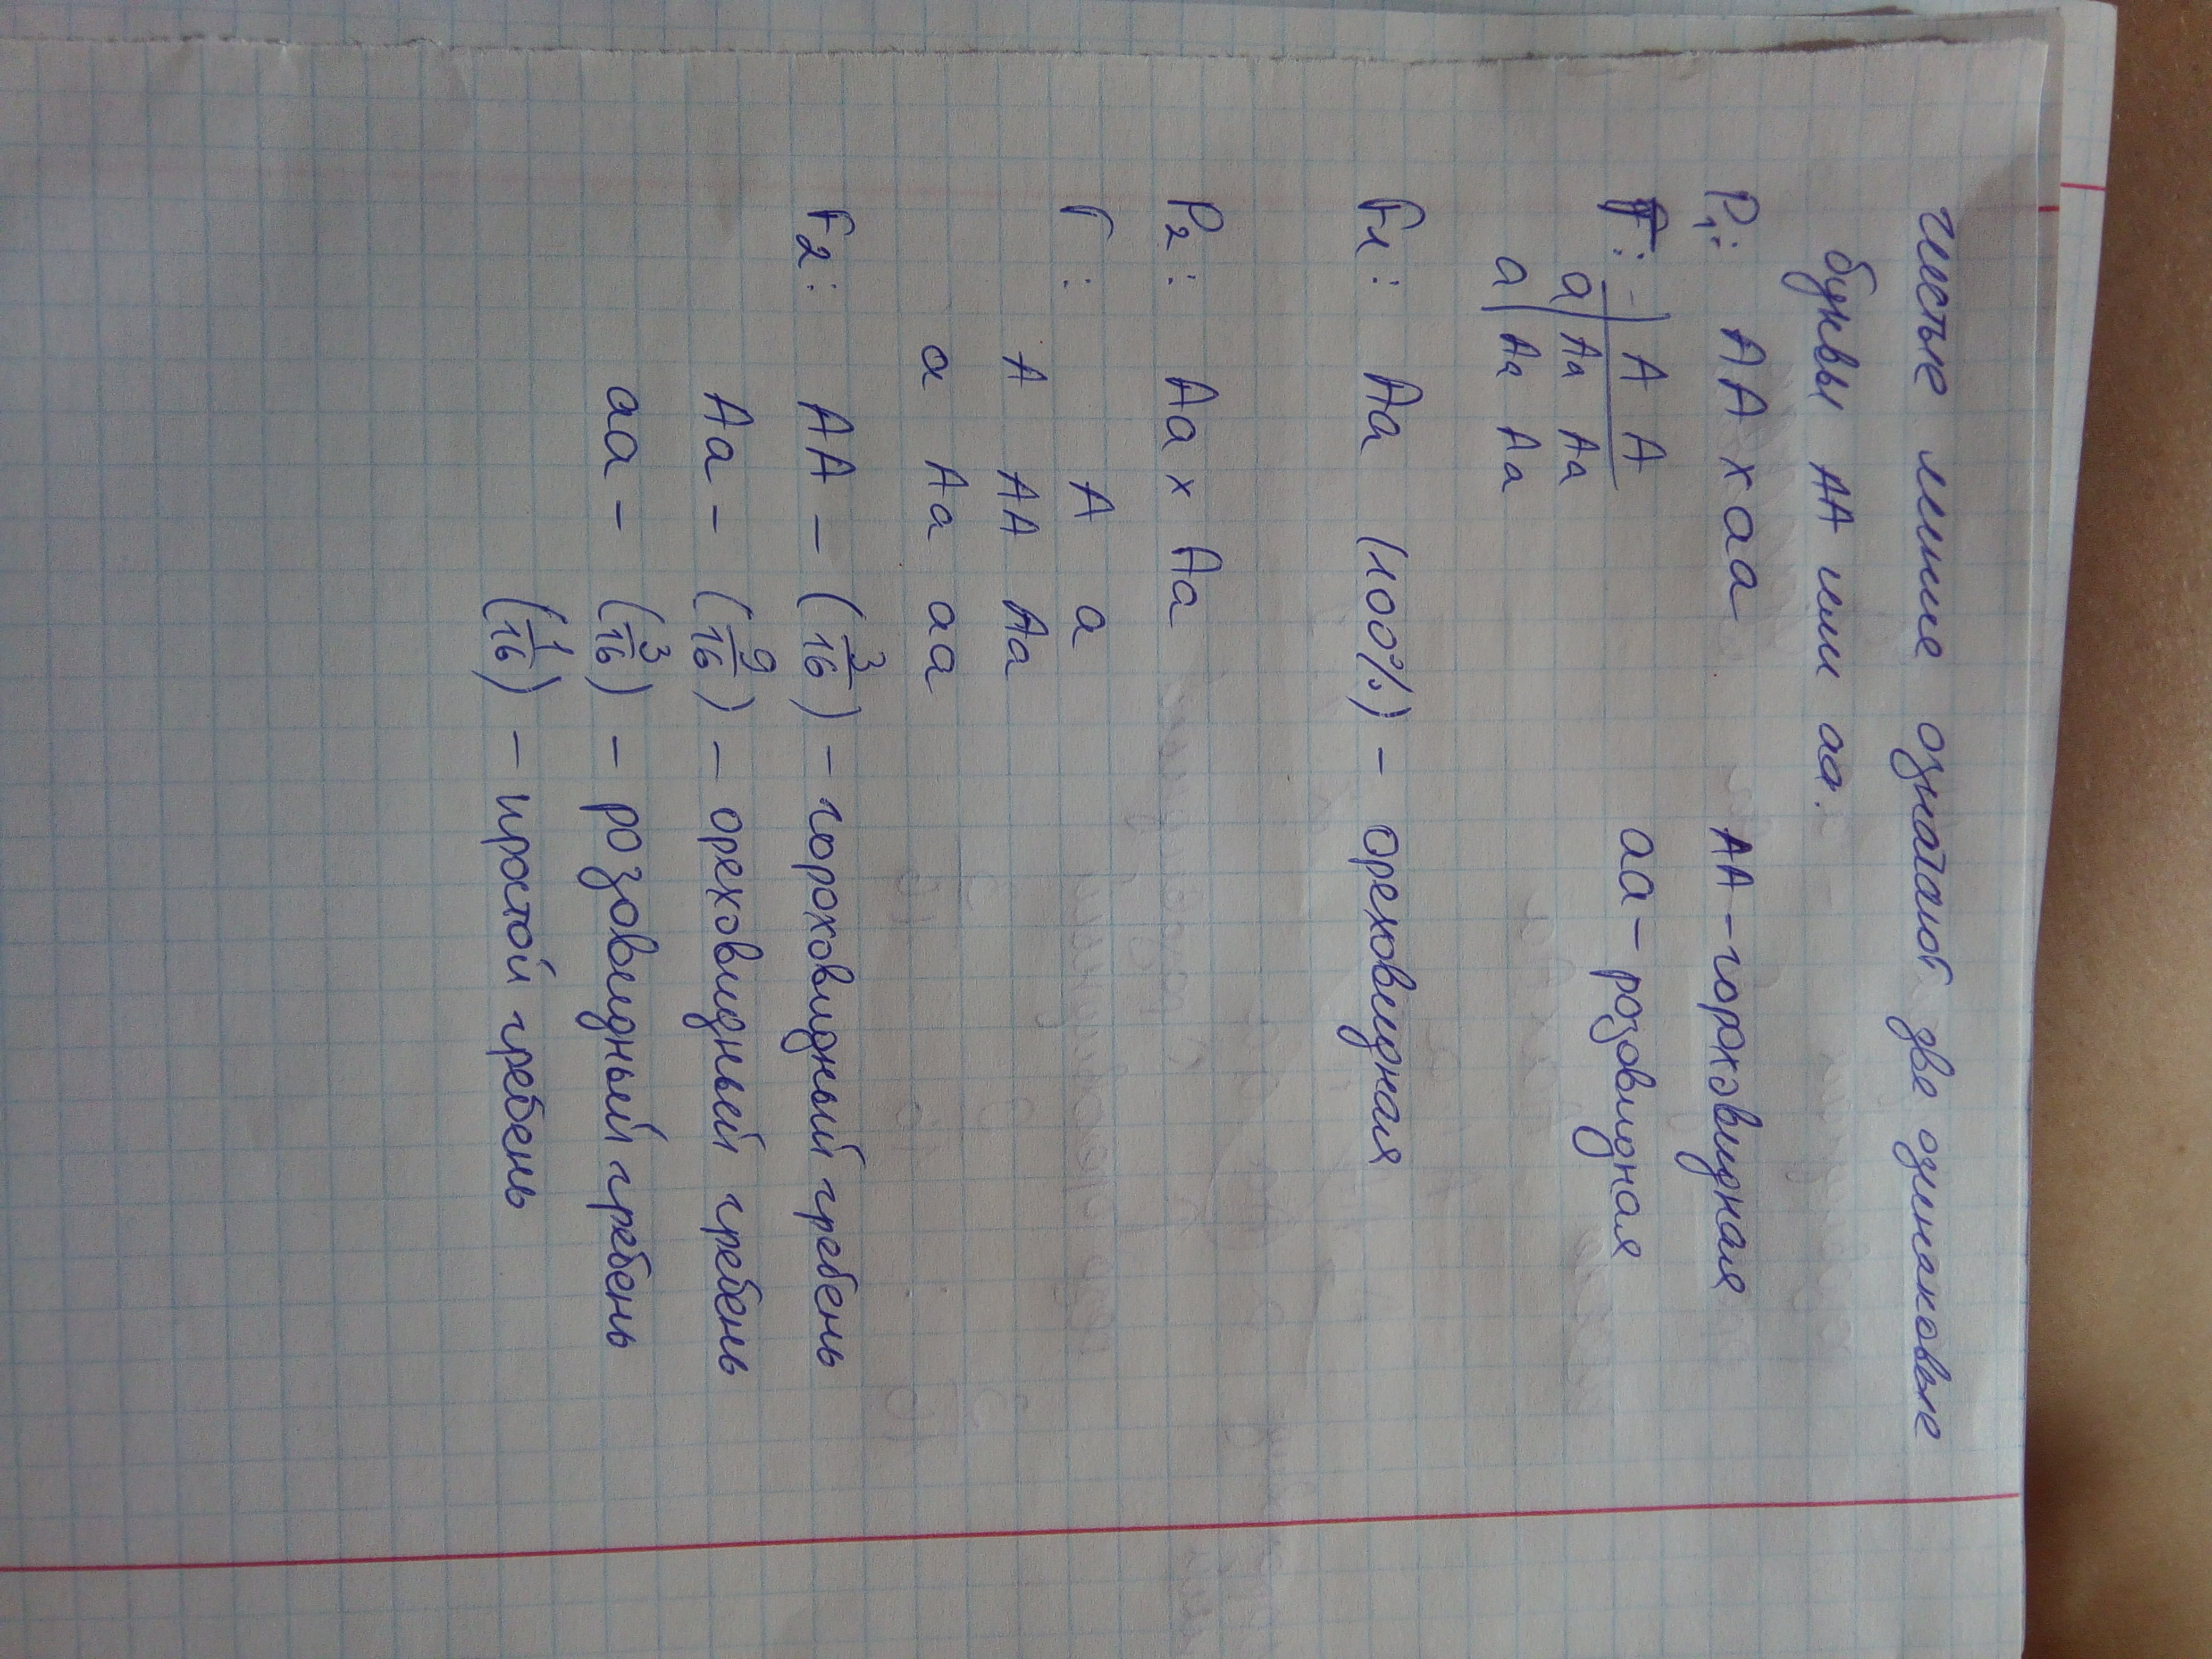 Чистые линии означают две одинаковые
буквы АА или аа.
P1: АА х аа АА - гороховидная
аа - розовидная
А А
а Аа Аа
а Аа Аа
F1: Аа (100%) - ореховидная
P2: Аа х Аа
Г: А а
А АА Аа
а Аа аа
F2: АА - (3/16) - гороховидный гребень
Аа - (9/16) - ореховидный гребень
аа - (3/16) - розовидный гребень
(1/16) - простой гребень